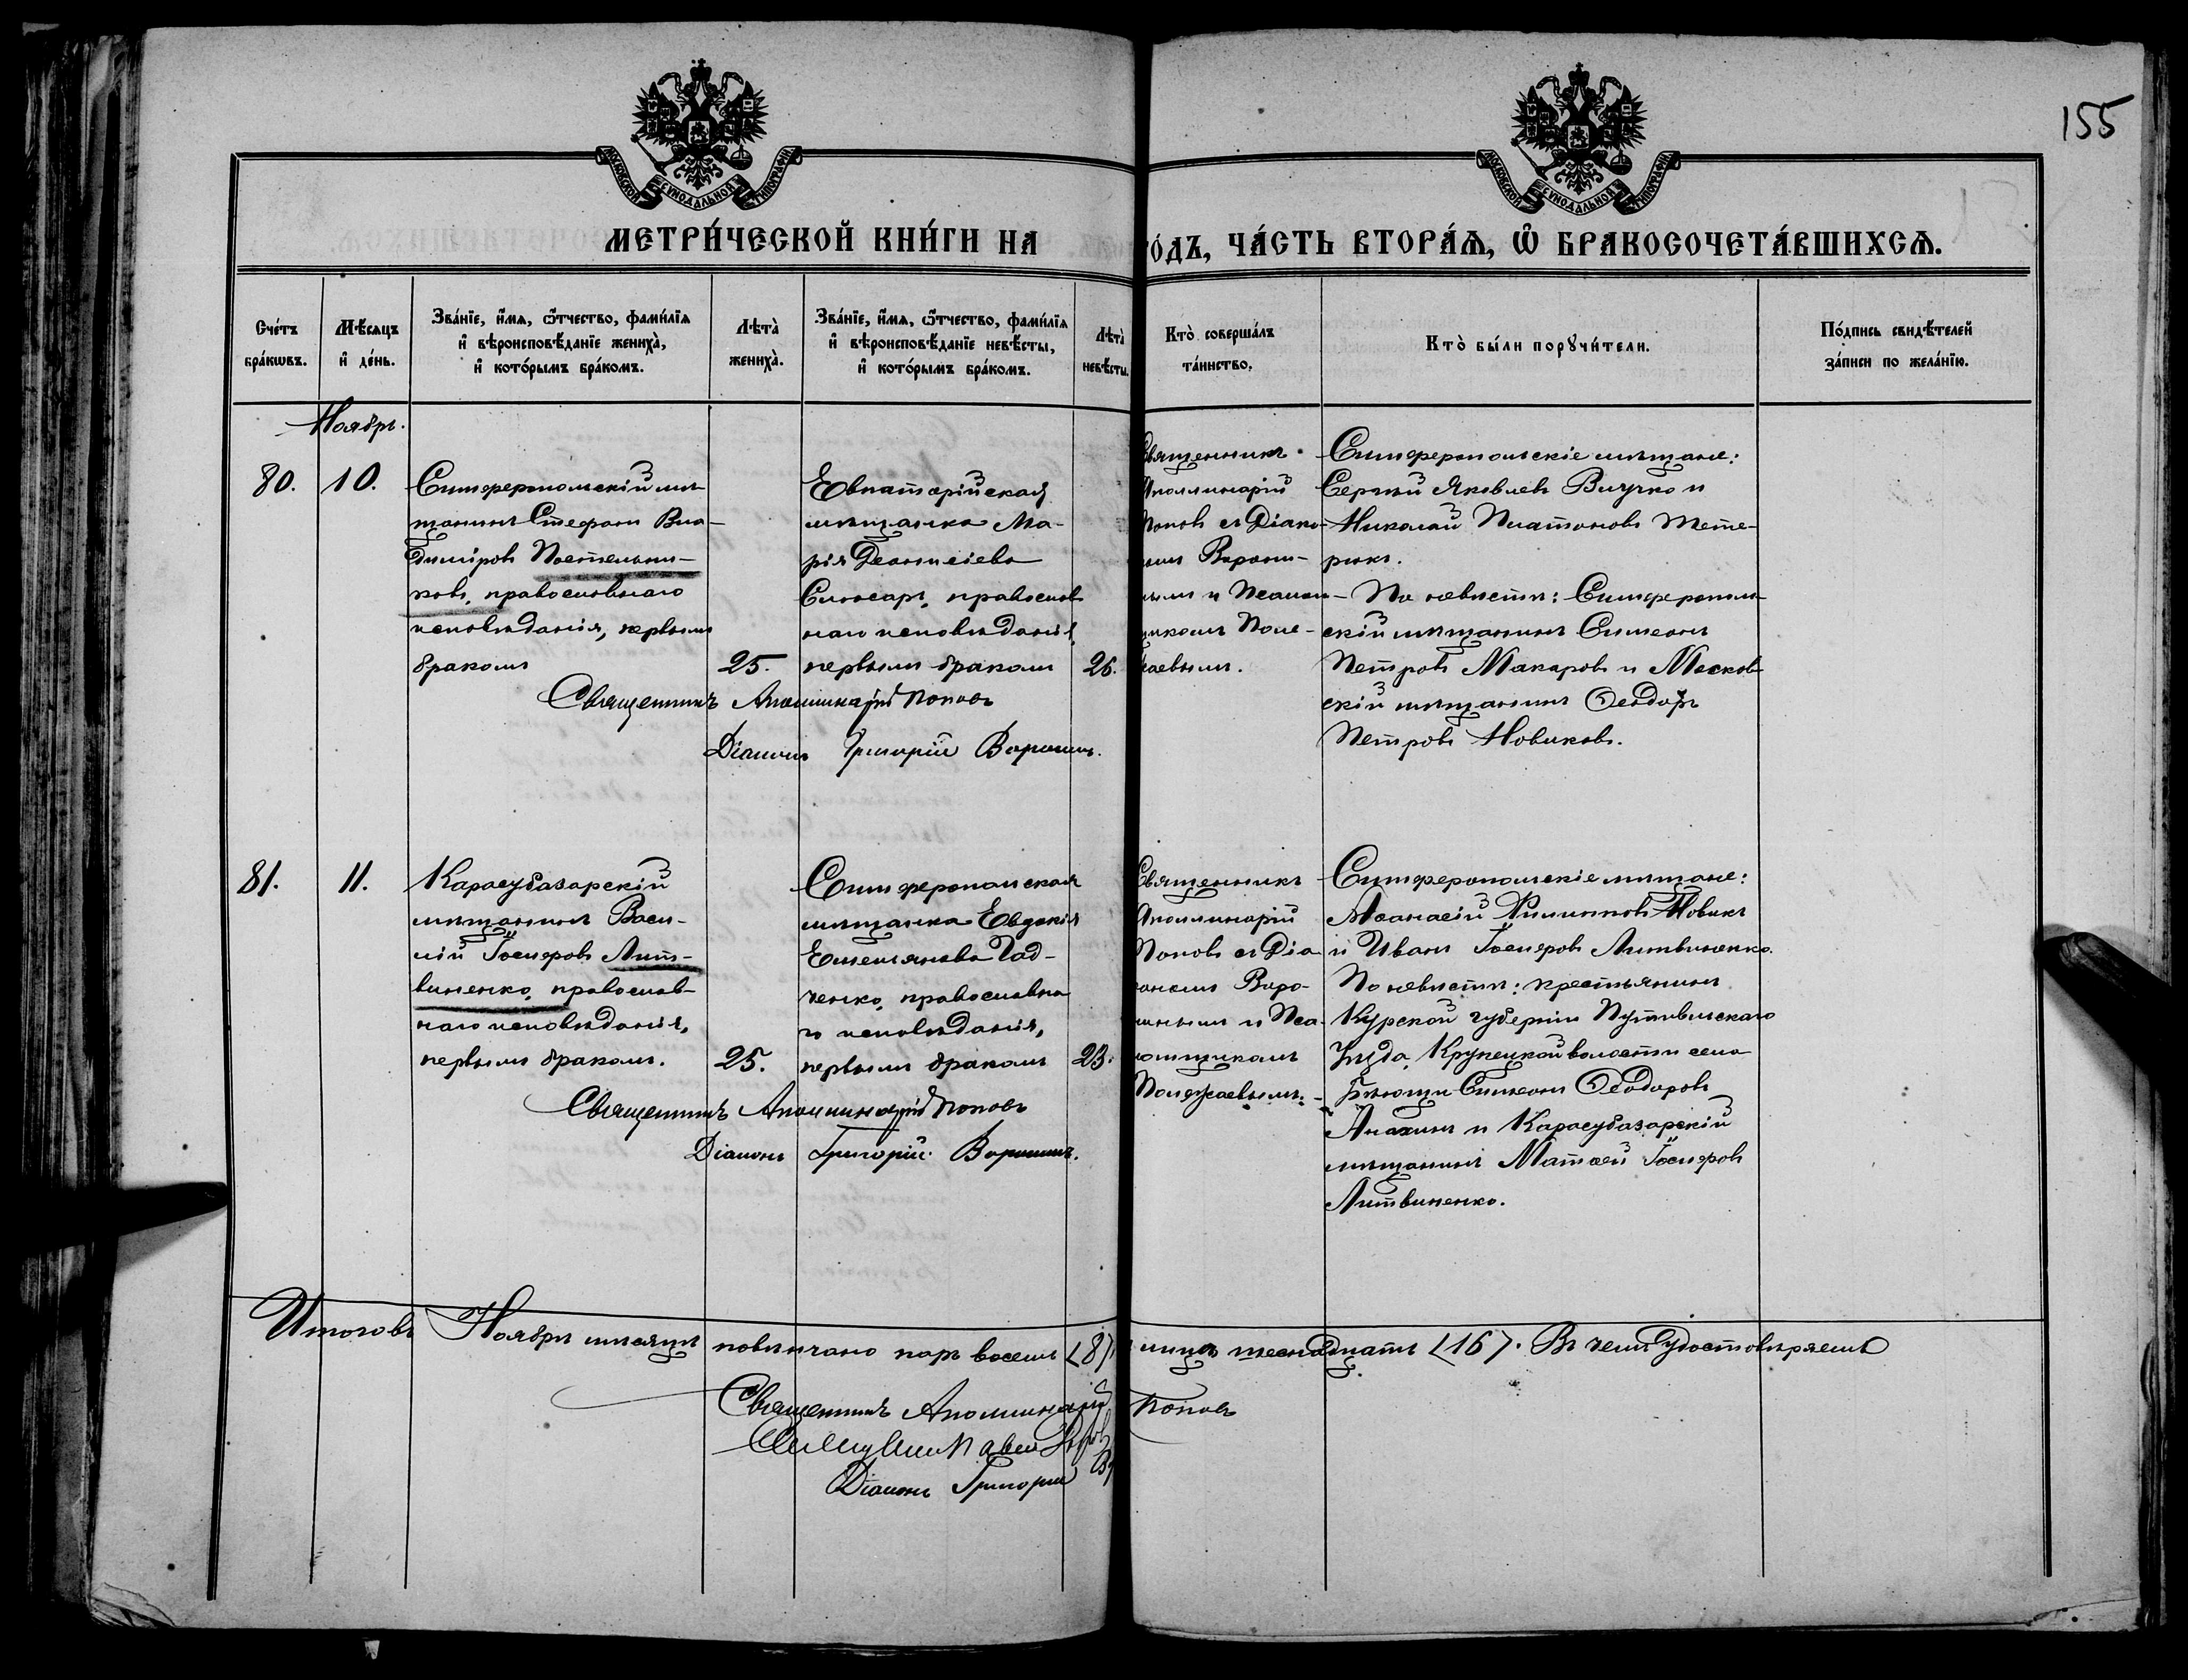 155
МОСКОВСКОЙ СѴНОДАЛЬНОЙ ТИПОГРАФІИ
МОСКОВСКОЙ СѴНОДАЛЬНОЙ ТИПОГРАФІИ
МЕТРИ́ЧЕСКОЙ КНИ́ГИ НА
О́ДЪ, ЧА́СТЬ ВТОРА́Ѧ, Ѽ БРАКОСОЧЕТА́ВШИХСѦ.
Сче́тъ
бра́кѡвъ.
Мѣ́сѧцъ
и҆ де́нь.
Зва́нїе, и҆́мѧ, ѻ҆́тчество, фами́лїѧ
и҆ вѣроисповѣ́данїе жениха̀,
и҆ кото́рымъ бра́комъ.
Лѣта̀
жениха̀.
Зва́нїе, и҆́мѧ, ѻ҆́тчество, фами́лїѧ
и҆ вѣроисповѣ́данїе невѣ́сты,
и҆ кото́рымъ бра́комъ.
Лѣта̀
невѣ́сты.
Кто̀ соверша́лъ
та́инство.
Кто̀ бы́ли порꙋчи́тели.
По́дпись свидѣ́телей
за́писи по жела́нїю.
Ноябрь.
80.
10.
Симферопольскій мѣ-
щанинъ Стефанъ Вла-
диміровъ Постельни-
ковъ, православнаго
исповѣданія, первымъ
бракомъ
25.
Евпаторійская
мѣщанка Ма-
рія Деонисіева
Слюсарь, православ
наго исповѣданія,
первымъ бракомъ
26.
Священникъ
Аполлинарій
Поповъ съ Діако-
номъ Ворони-
нымъ и Псалом-
щикомъ Поле-
жаевымъ.
Симферопольскіе мѣщане:
Сергѣй Яковлевъ Вичуко и
Николай Платоновъ Тете-
рюкъ.
По невѣстѣ: Симферополь-
скій мѣщанинъ Симеонъ
Петровъ Макаровъ и Москов-
скій мѣщанинъ Ѳеодоръ
Петровъ Новиковъ.
Священникъ Аполлинарій Поповъ
Діаконъ Григорій Воронинъ.
81.
11.
Карасубазарскій
мѣщанинъ Васи-
лій Іосифовъ Лит-
виненко, православ-
наго исповѣданія,
первымъ бракомъ.
25.
Симферопольская
мѣщанка Евдокія
Емельянова Рад-
ченко, православна
го исповѣданія,
первымъ бракомъ
23.
Священникъ
Аполлинарій
Поповъ съ Діа
кономъ Воро-
нинымъ и Пса-
ломщикомъ
Полежаевымъ.
Симферопольскіе мѣщане:
Аѳанасій Филипповъ Новикъ
и Иванъ Іосифовъ Литвиненко.
По невѣстѣ: крестьянинъ
Курской губерніи Путивльскаго
Уѣзда, Крупецкой волости села
Симеонъ Ѳеодоровъ
Анохинъ и Карасубазарскій
мѣщанинъ Матѳей Іосифовъ
Литвиненко.
Священникъ Аполлинарій Поповъ
Діаконъ Григорій Воронинъ.
Итого въ Ноябрѣ мѣсяцѣ повѣнчано паръ восемь (8),
лицъ шеснадцать (16). Въ чемъ удостовѣряемъ
Священникъ Аполлинарій Поповъ
Діаконъ Григорій